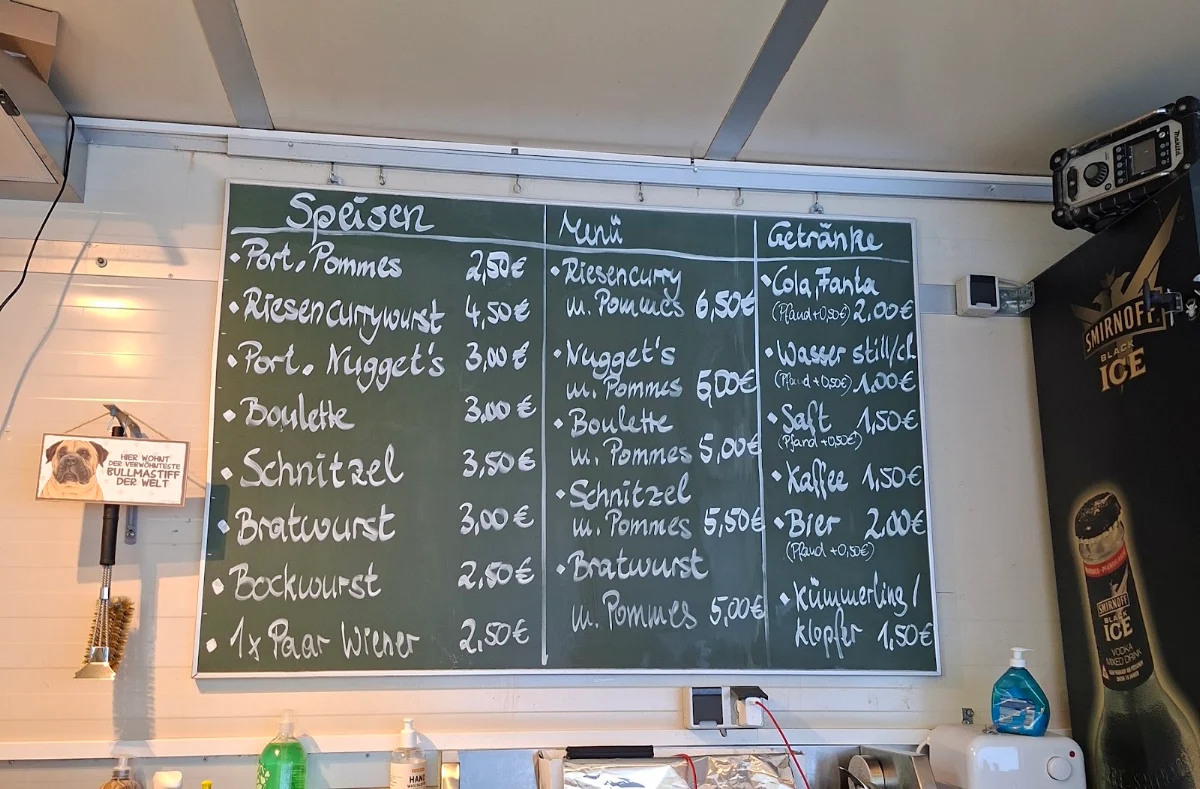 Speisen
• Port. Pommes 2,50€
• Riesencurrywurst 4,50€
• Port. Nugget's 3,00€
• Boulette 3,00€
• Schnitzel 3,50€
• Bratwurst 3,00€
• Bockwurst 2,50€
• 1x Paar Wiener 2,50€
Menü
• Riesencurry
m. Pommes 6,50€
• Nugget's
m. Pommes 5,00€
• Boulette
m. Pommes 5,00€
• Schnitzel
m. Pommes 5,50€
• Bratwurst
m. Pommes 5,00€
Getränke
• Cola, Fanta
(Pfand+0,50€) 2,00€
• Wasser still/cl
(Pfand+0,50€) 1,00€
• Saft 1,50€
(Pfand+0,50€)
• Kaffee 1,50€
• Bier 2,00€
(Pfand+0,50€)
• Kümmerling/
klopfer 1,50€
HIER WOHNT
DER VERWÖHNTESTE
BULLMASTIFF
DER WELT
makita
SMIRNOFF
BLACK
ICE
SMIRNOFF
BLACK
ICE
VODKA
MIXED DRINK
HAND